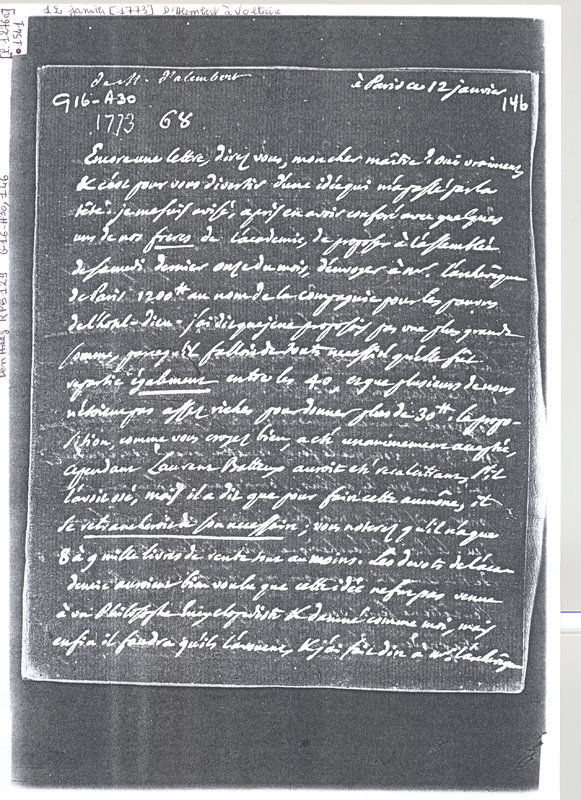 12 janvier [1773] D'Alembert à Voltaire
de M. d'alembert
à Paris ce 12 janvier
G16-A30
146
1773 68
Encore une lettre, direz vous, mon cher maître ? oui vraiment,
& c'est pour vous divertir d'une idée qui m'a passé par la
tête : je me suis avisé, après en avoir conferé avec quelques
uns de nos freres de l'academie, de proposer à l'assemblée
de samedi dernier onze du mois, d'envoyer à mr. l'archevêque
de Paris 1200tt au nom de la compagnie pour les pauvres
de l'hotel-dieu. j'ai dit que je ne proposois pas une plus grande
somme, parce qu'il falloit de toute necessité qu'elle fut
repartie également entre les 40, & que plusieurs de nous
n'étoient pas assez riches pour donner plus de 30tt. la propo-
sition comme vous croyez bien, a eté unanimement acceptée,
cependant Laurent Batteux auroit eté recalcitrant, s'il
l'avoit osé, mais il a dit que pour faire cette aumône, il
se retrancheroit de son necessaire ; vous noterez qu'il n'a que
8 à 9 mille livres de rente tout au moins. Les devots de l'aca-
demie auroient bien voulu que cette idée ne fut pas venue
à un Philosophe Encyclopediste & damné comme moi, mais
enfin il faudra qu'ils l'avouent, & j'ai fait dire à mr. l'archevêque